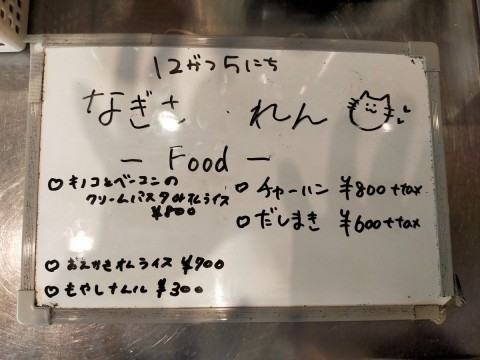 12がつ5にち
なぎさ・れん
— Food —
♡ キノコとベーコンの
クリームパスタorオムライス
¥800
♡ チャーハン ¥800+tax
♡ だしまき ¥600+tax
♡ おえかきオムライス ¥700
♡ もやしナムル ¥300